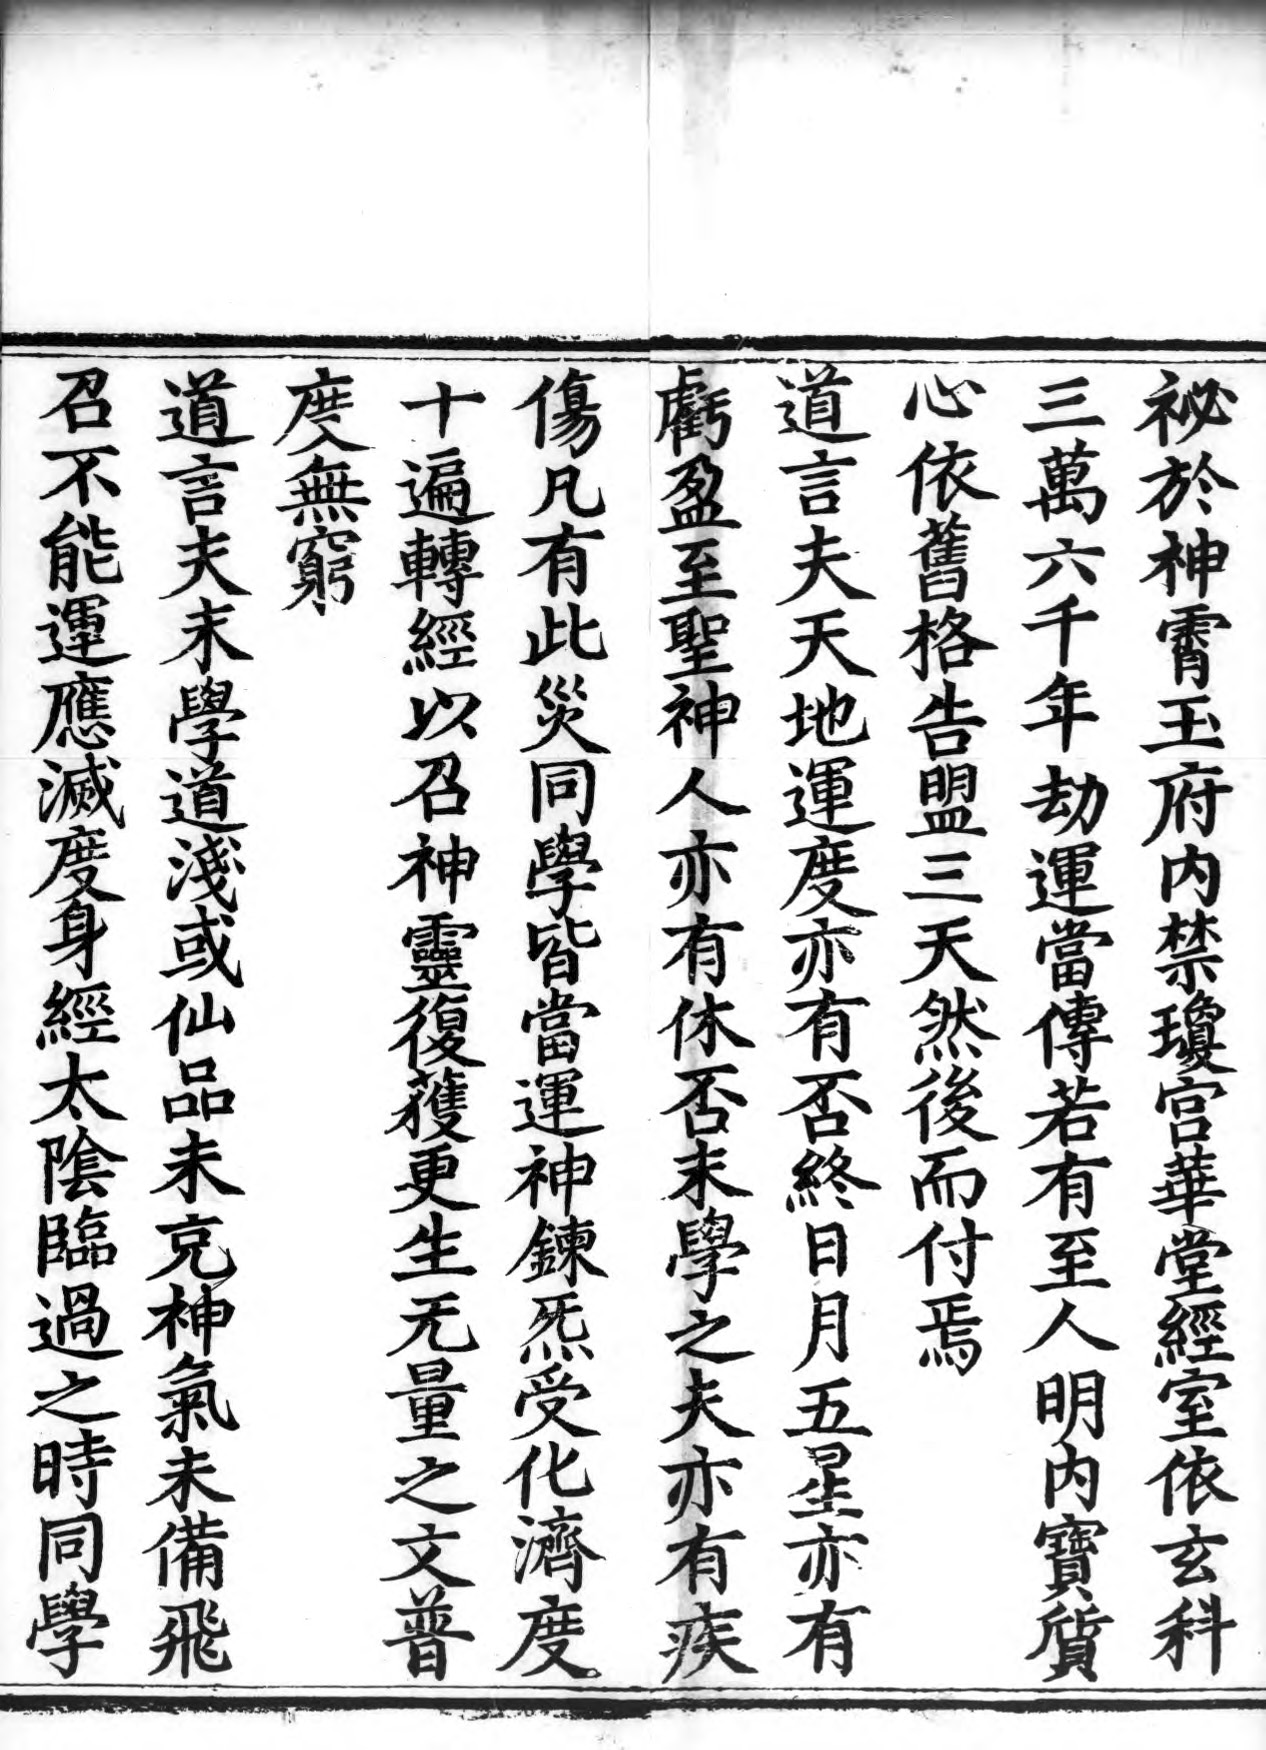 祕於神霄玉府內禁瓊宫華堂經室依玄科
三萬六千年劫運當傳若有至人明内寶質
心依舊格告盟三天然後而付焉
道言夫天地運度亦有否終日月五星亦有
虧盈至聖神人亦有休否末學之夫亦有疾
傷凡有此災同學皆當運神鍊炁受化濟度
十遍轉經以召神靈復獲更生无量之文普
度無窮
道言夫末學道淺或仙品未充神氣未備飛
召不能運應滅度身經太陰臨過之時同學